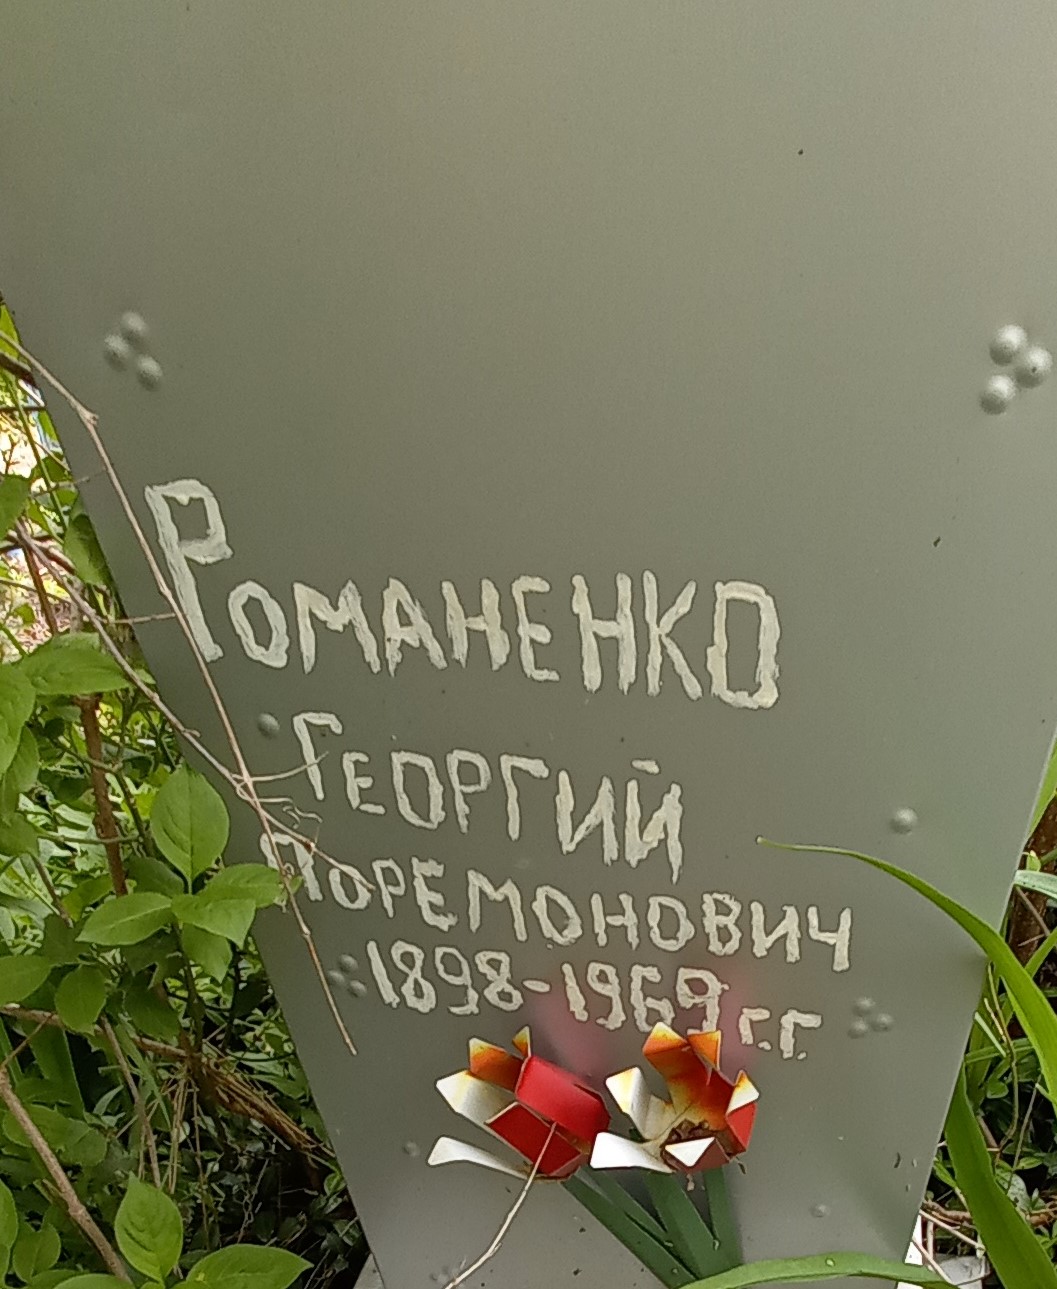 РОМАНЕНКО
ГЕОРГИЙ
ПОРЕМОНОВИЧ
1898-1969 г.г.